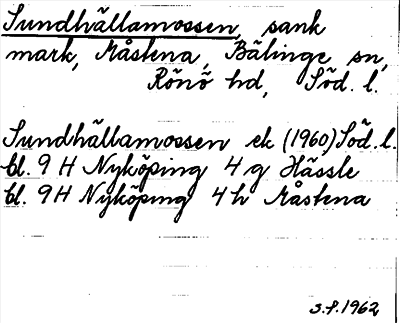 Sundhällamossen, sank
mark, Måstena, Bälinge sn,
Rönö hd, Söd. l.
Sundhällamossen ek (1960) Söd. l.
bl. 9 H Nyköping 4 g Hässle
bl. 9H Nyköping 4 h Måstena
S.f. 1962